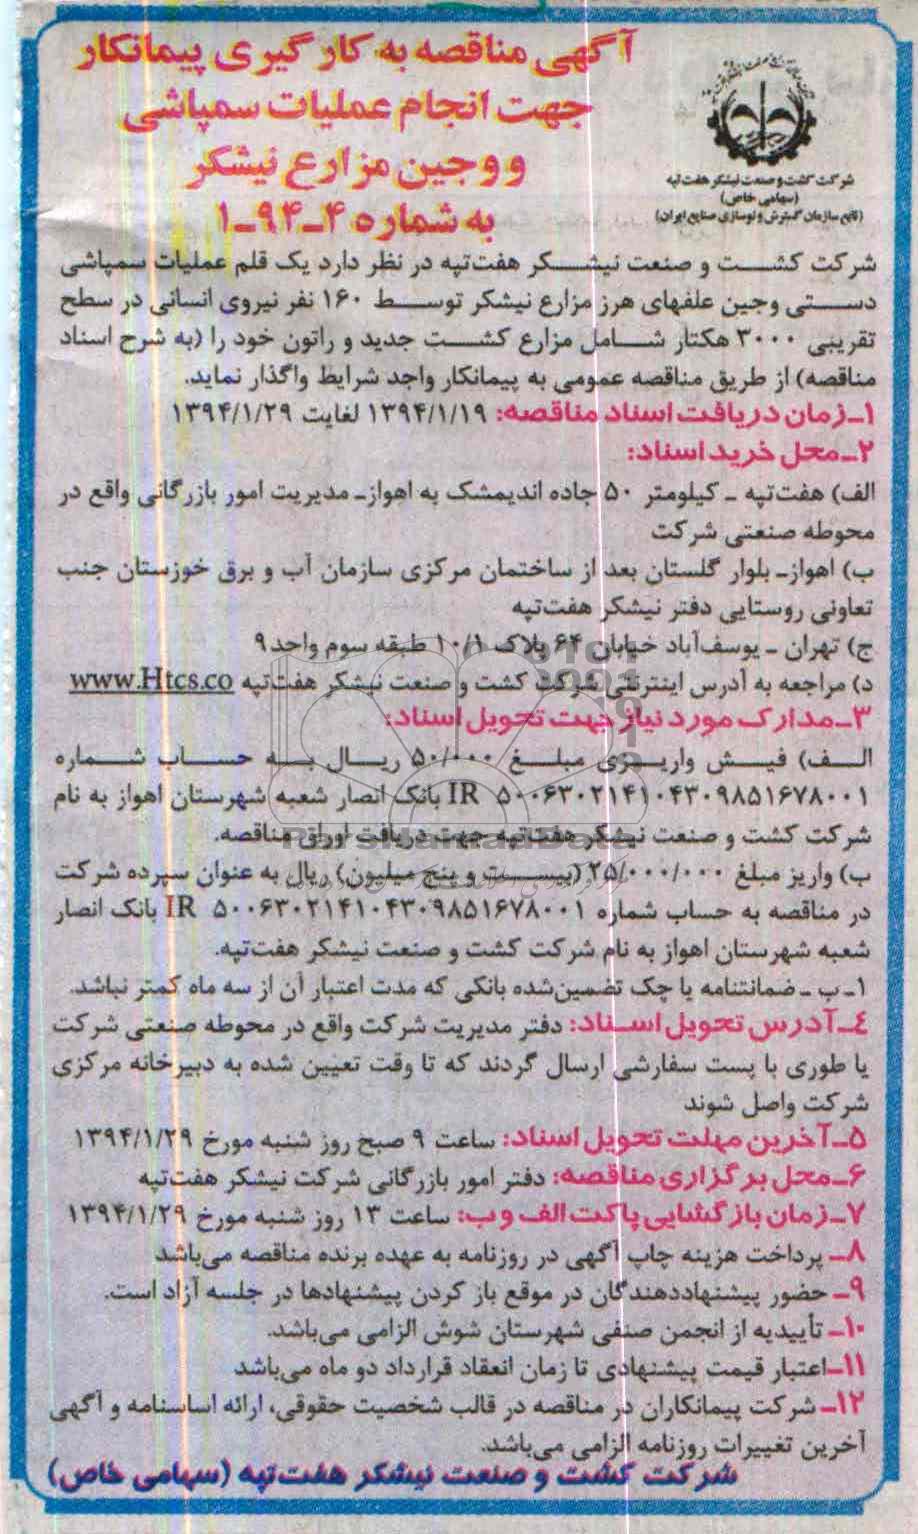 آگهی مناقصه به کارگیری پیمانکار
جهت انجام عملیات سمپاشی
و وجین مزارع نیشکر
به شماره ۴ـ۹۴ـ۱
شرکت کشت و صنعت نیشکر هفت تپه
(سهامی خاص)
(تابع سازمان گسترش و نوسازی صنایع ایران)
شرکت کشت و صنعت نیشکر هفت‌تپه در نظر دارد یک قلم عملیات سمپاشی
دستی وجین علفهای هرز مزارع نیشکر توسط ۱۶۰ نفر نیروی انسانی در سطح
تقریبی ۳۰۰۰ هکتار شامل مزارع کشت جدید و راتون خود را (به شرح اسناد
مناقصه) از طریق مناقصه عمومی به پیمانکار واجد شرایط واگذار نماید.
۱ـ زمان دریافت اسناد مناقصه: ۱۳۹۴/۱/۱۹ لغایت ۱۳۹۴/۱/۲۹
۲ـ محل خرید اسناد:
الف) هفت‌تپه ـ کیلومتر ۵۰ جاده اندیمشک به اهواز ـ مدیریت امور بازرگانی واقع در
محوطه صنعتی شرکت
ب) اهواز ـ بلوار گلستان بعد از ساختمان مرکزی سازمان آب و برق خوزستان جنب
تعاونی روستایی دفتر نیشکر هفت‌تپه
ج) تهران ـ یوسف‌آباد خیابان ۶۴ پلاک ۱۰/۱ طبقه سوم واحد ۹
د) مراجعه به آدرس اینترنتی شرکت کشت و صنعت نیشکر هفت‌تپه www.Htcs.co
۳ـ مدارک مورد نیاز جهت تحویل اسناد:
الف) فیش واریزی مبلغ ۵۰/۰۰۰ ریال به حساب شماره
IR ۵۰۰۶۳۰۲۱۴۱۰۴۳۰۹۸۵۱۶۷۸۰۰۱ بانک انصار شعبه شهرستان اهواز به نام
شرکت کشت و صنعت نیشکر هفت‌تپه جهت دریافت اوراق مناقصه.
ب) واریز مبلغ ۲۵/۰۰۰/۰۰۰ (بیست و پنج میلیون) ریال به عنوان سپرده شرکت
در مناقصه به حساب شماره IR ۵۰۰۶۳۰۲۱۴۱۰۴۳۰۹۸۵۱۶۷۸۰۰۱ بانک انصار
شعبه شهرستان اهواز به نام شرکت کشت و صنعت نیشکر هفت‌تپه.
۱ـ ب ـ ضمانتنامه یا چک تضمین‌شده بانکی که مدت اعتبار آن از سه ماه کمتر نباشد.
۴ـ آدرس تحویل اسناد: دفتر مدیریت شرکت واقع در محوطه صنعتی شرکت
یا طوری با پست سفارشی ارسال گردند که تا وقت تعیین شده به دبیرخانه مرکزی
شرکت واصل شوند
۵ـ آخرین مهلت تحویل اسناد: ساعت ۹ صبح روز شنبه مورخ ۱۳۹۴/۱/۲۹
۶ـ محل برگزاری مناقصه: دفتر امور بازرگانی شرکت نیشکر هفت‌تپه
۷ـ زمان بازگشایی پاکت الف و ب: ساعت ۱۳ روز شنبه مورخ ۱۳۹۴/۱/۲۹
۸ـ پرداخت هزینه چاپ آگهی در روزنامه به عهده برنده مناقصه می‌باشد
۹ـ حضور پیشنهاددهندگان در موقع باز کردن پیشنهادها در جلسه آزاد است.
۱۰ـ تأییدیه از انجمن صنفی شهرستان شوش الزامی می‌باشد.
۱۱ـ اعتبار قیمت پیشنهادی تا زمان انعقاد قرارداد دو ماه می‌باشد
۱۲ـ شرکت پیمانکاران در مناقصه در قالب شخصیت حقوقی، ارائه اساسنامه و آگهی
آخرین تغییرات روزنامه الزامی می‌باشد.
شرکت کشت و صنعت نیشکر هفت‌تپه (سهامی خاص)